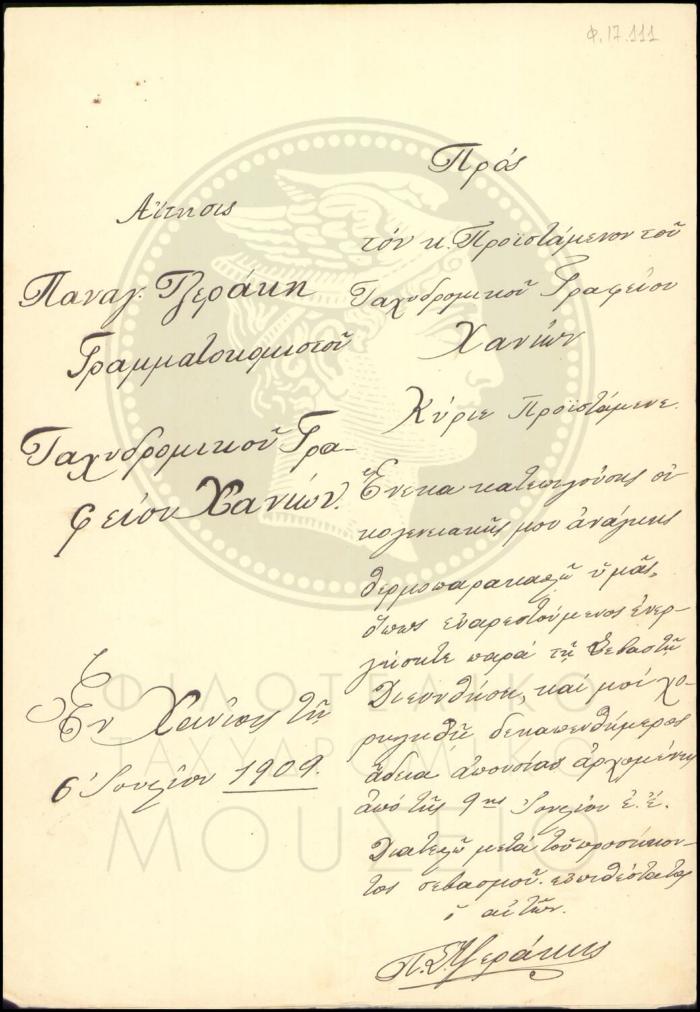 Φ.17.111
Αἴτησις
Παναγ. Τζεράκη
Γραμματοκομιστοῦ
Ταχυδρομικοῦ Γρα-
φείου Χανίων.
Ἐν Χανίοις τῇ
6 Ἰουλίου 1909.
Πρός
τόν κ. Προϊστάμενον τοῦ
Ταχυδρομικοῦ Γραφείου
Χανίων
Κύριε Προϊστάμενε.
Ἕνεκα κατεπιγούσης οἰ
κογενειακῆς μου ἀνάγκης
θερμοπαρακαλῶ ὑμᾶς,
ὅπως εὐαρεστούμενος ἐνερ-
γήσητε παρά τῇ Σεβαστῇ
Διευθήνσῃ, καί μοί χο-
ρηγηθῇ δεκαπενθήμερος
ἄδεια ἀπουσίας ἀρχομένης
ἀπό τῆς 9ης Ἰουλίου ἐ.ἔ.
Διατελῶ μετά τοῦ προσήκον-
τος σεβασμοῦ. εὐπειθέστατος
ὁ αἰτῶν.
Π.Σ. Τζεράκης
ΦΙΛΟΤΕΛΙΚΟ
ΤΑΧΥΔΡΟΜΙΚΟ
ΜΟΥΣΕΙΟ